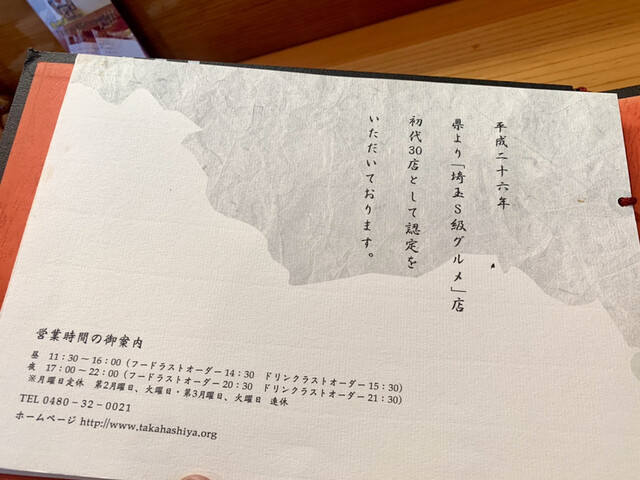 平成二十六年
県より「埼玉S級グルメ」店
初代30店として認定を
いただいております。
営業時間の御案内
昼 11:30～16:00（フードラストオーダー14:30 ドリンクラストオーダー15:30）
夜 17:00～22:00（フードラストオーダー20:30 ドリンクラストオーダー21:30）
※月曜日定休 第2月曜日、火曜日・第3月曜日、火曜日 連休
TEL 0480－32－0021
ホームページ http://www.takahashiya.org